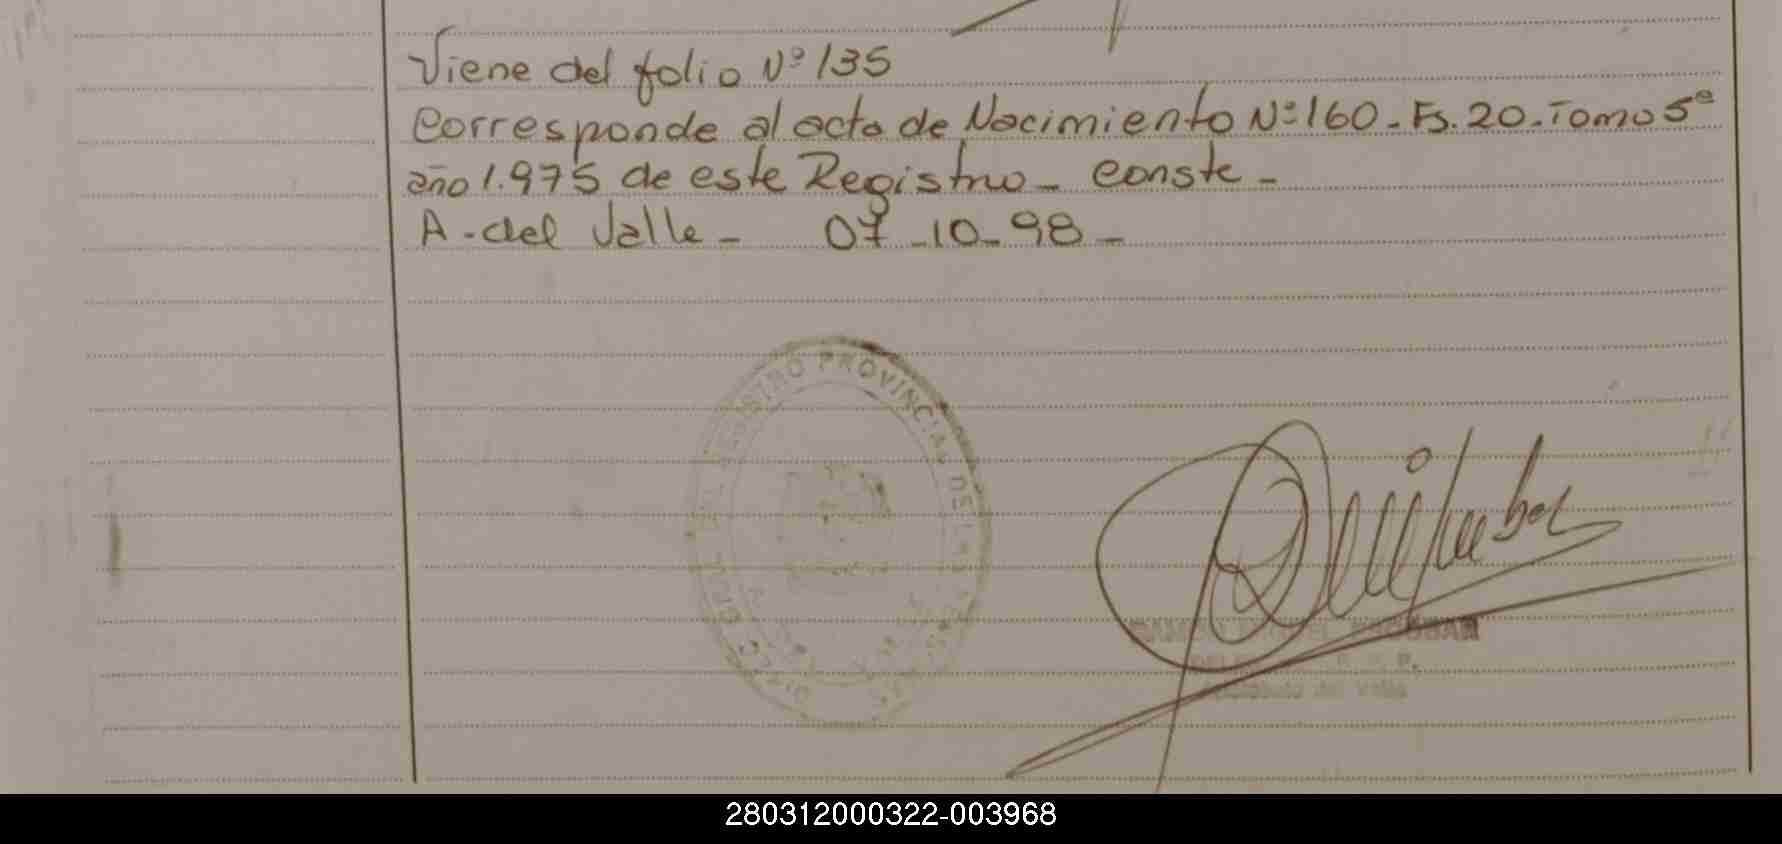 Viene del folio Nº 135
Corresponde al acta de Nacimiento Nº 160 - Fs. 20 - Tomo 5º
año 1.975 de este Registro - Conste -
A. del Valle - 07 - 10 - 98 -
REGISTRO PROVINCIAL DE LAS
280312000322-003968